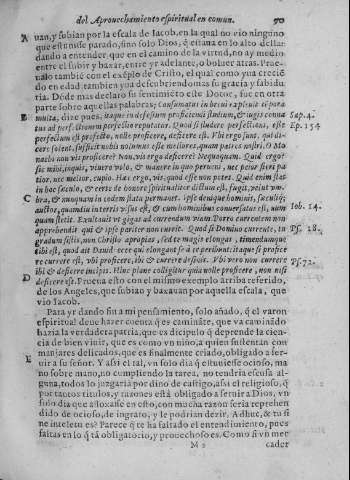 del Aprouechamiento espiritual en comun. 90
A uan, y subian por la escala de Iacob, en la qual no vio ninguno
que estuuiesse parado, sino solo Dios, q̃ estaua en lo alto dellar
dando a entender que en el camino de la virtud, no ay medio
entre el subir y baxar, entre yr adelante, o boluer atras. Prue-
ualo tambiẽ con el exẽplo de Cristo, el qual como yua creciẽ
do en edad tambien yua descubriendo mas su gracia y sabidu
ria. Dõde mas declaro su sentimiẽto este Dotor, fue en otra
parte sobre aquellas palabras; Consumatus in breui expleuit tẽpora
B multa, dize pues, itaque indefessum proficiendi studium, & iugis cona- Sap. 4.
tus ad perfectionem perfectio reputatur. Quod si studere perfectioni, esse Ep. 254
perfectum est profecto, nolle proficere, deficere est. Vbi ergo sunt, qui di-
cere solent, sufficit nobis nolumus esse meliores, quam patres nostri. O Mo
nache non vis proficere? Non, vis ergo deficere? Nequaquam. Quid ergo?
sic mihi, inquis, viuere volo, & manere in quo perueni, nec peior fieri pa
tior, nec melior, cupio. Hoc ergo, vis, quod esse non potest. Quid enim stat
in hoc sæculo, & certe de homine spiritualiter dictum est, fugit, velut vm-
C bra, & nunquam in eodem statu permanet. ipse denique hominis, & sæculi Iob. 14.
auctor, quamdiu in terris visus est, & cum hominibus conuersatus est, num
quam stetit. Exultauit vt gigas ad currendam viam. Porro currentem non
apprehendit qui & ipse pariter non currit. Quod si Domino currente, tu Ps. 18.
gradum sistis, non Christo apropias, sed te magis elongas, timendumque
tibi est, quod ait Dauid ecce qui elongant se à te peribunt. itaque si profice
re currere est, vbi proficere, ibi & currere desinis. Vbi vero non currere Ps. 72.
ibi & deficere incipis. Hinc plane colligitur quia nolle proficere, non nisi
D deficere est. Prueua esto con el mismo exemplo arriba referido,
de los Angeles, que subian y baxauan por aquella escala, que
vio Iacob.
Para yr dando fin a mi pensamiento, solo añado, q̃ el varon
espiritual deue hazer cuenta q̃ es caminãte, que va caminãdo
hazia la verdadera patria, que es dicipulo q̃ depende la cien-
cia de bien viuir, que es como vn niño, a quien sustentan con
manjares delicados, que es finalmente criado, obligado a ser-
E uir a su señor. Y assi el tal, vn solo dia q̃ estuuiesse ocioso, ma
no sobre mano, no cumpliendo la tarea, no tendria escusa al-
guna, todos lo juzgaria por dino de castigo, assi el religioso, q̃
por tantos titulos, y razones està obligado a seruir a Dios, vn
solo dia que afloxasse en esto, con mucha razon seria reprehen
dido de ocioso, de ingrato, y le podrian dezir. Adhuc, & tu si
ne intelectu es? Parece q̃ te ha faltado el entendimiento, pues
faltas en lo q̃ tã obligatorio, y prouechoso es. Como si vn mer
M 2 cader